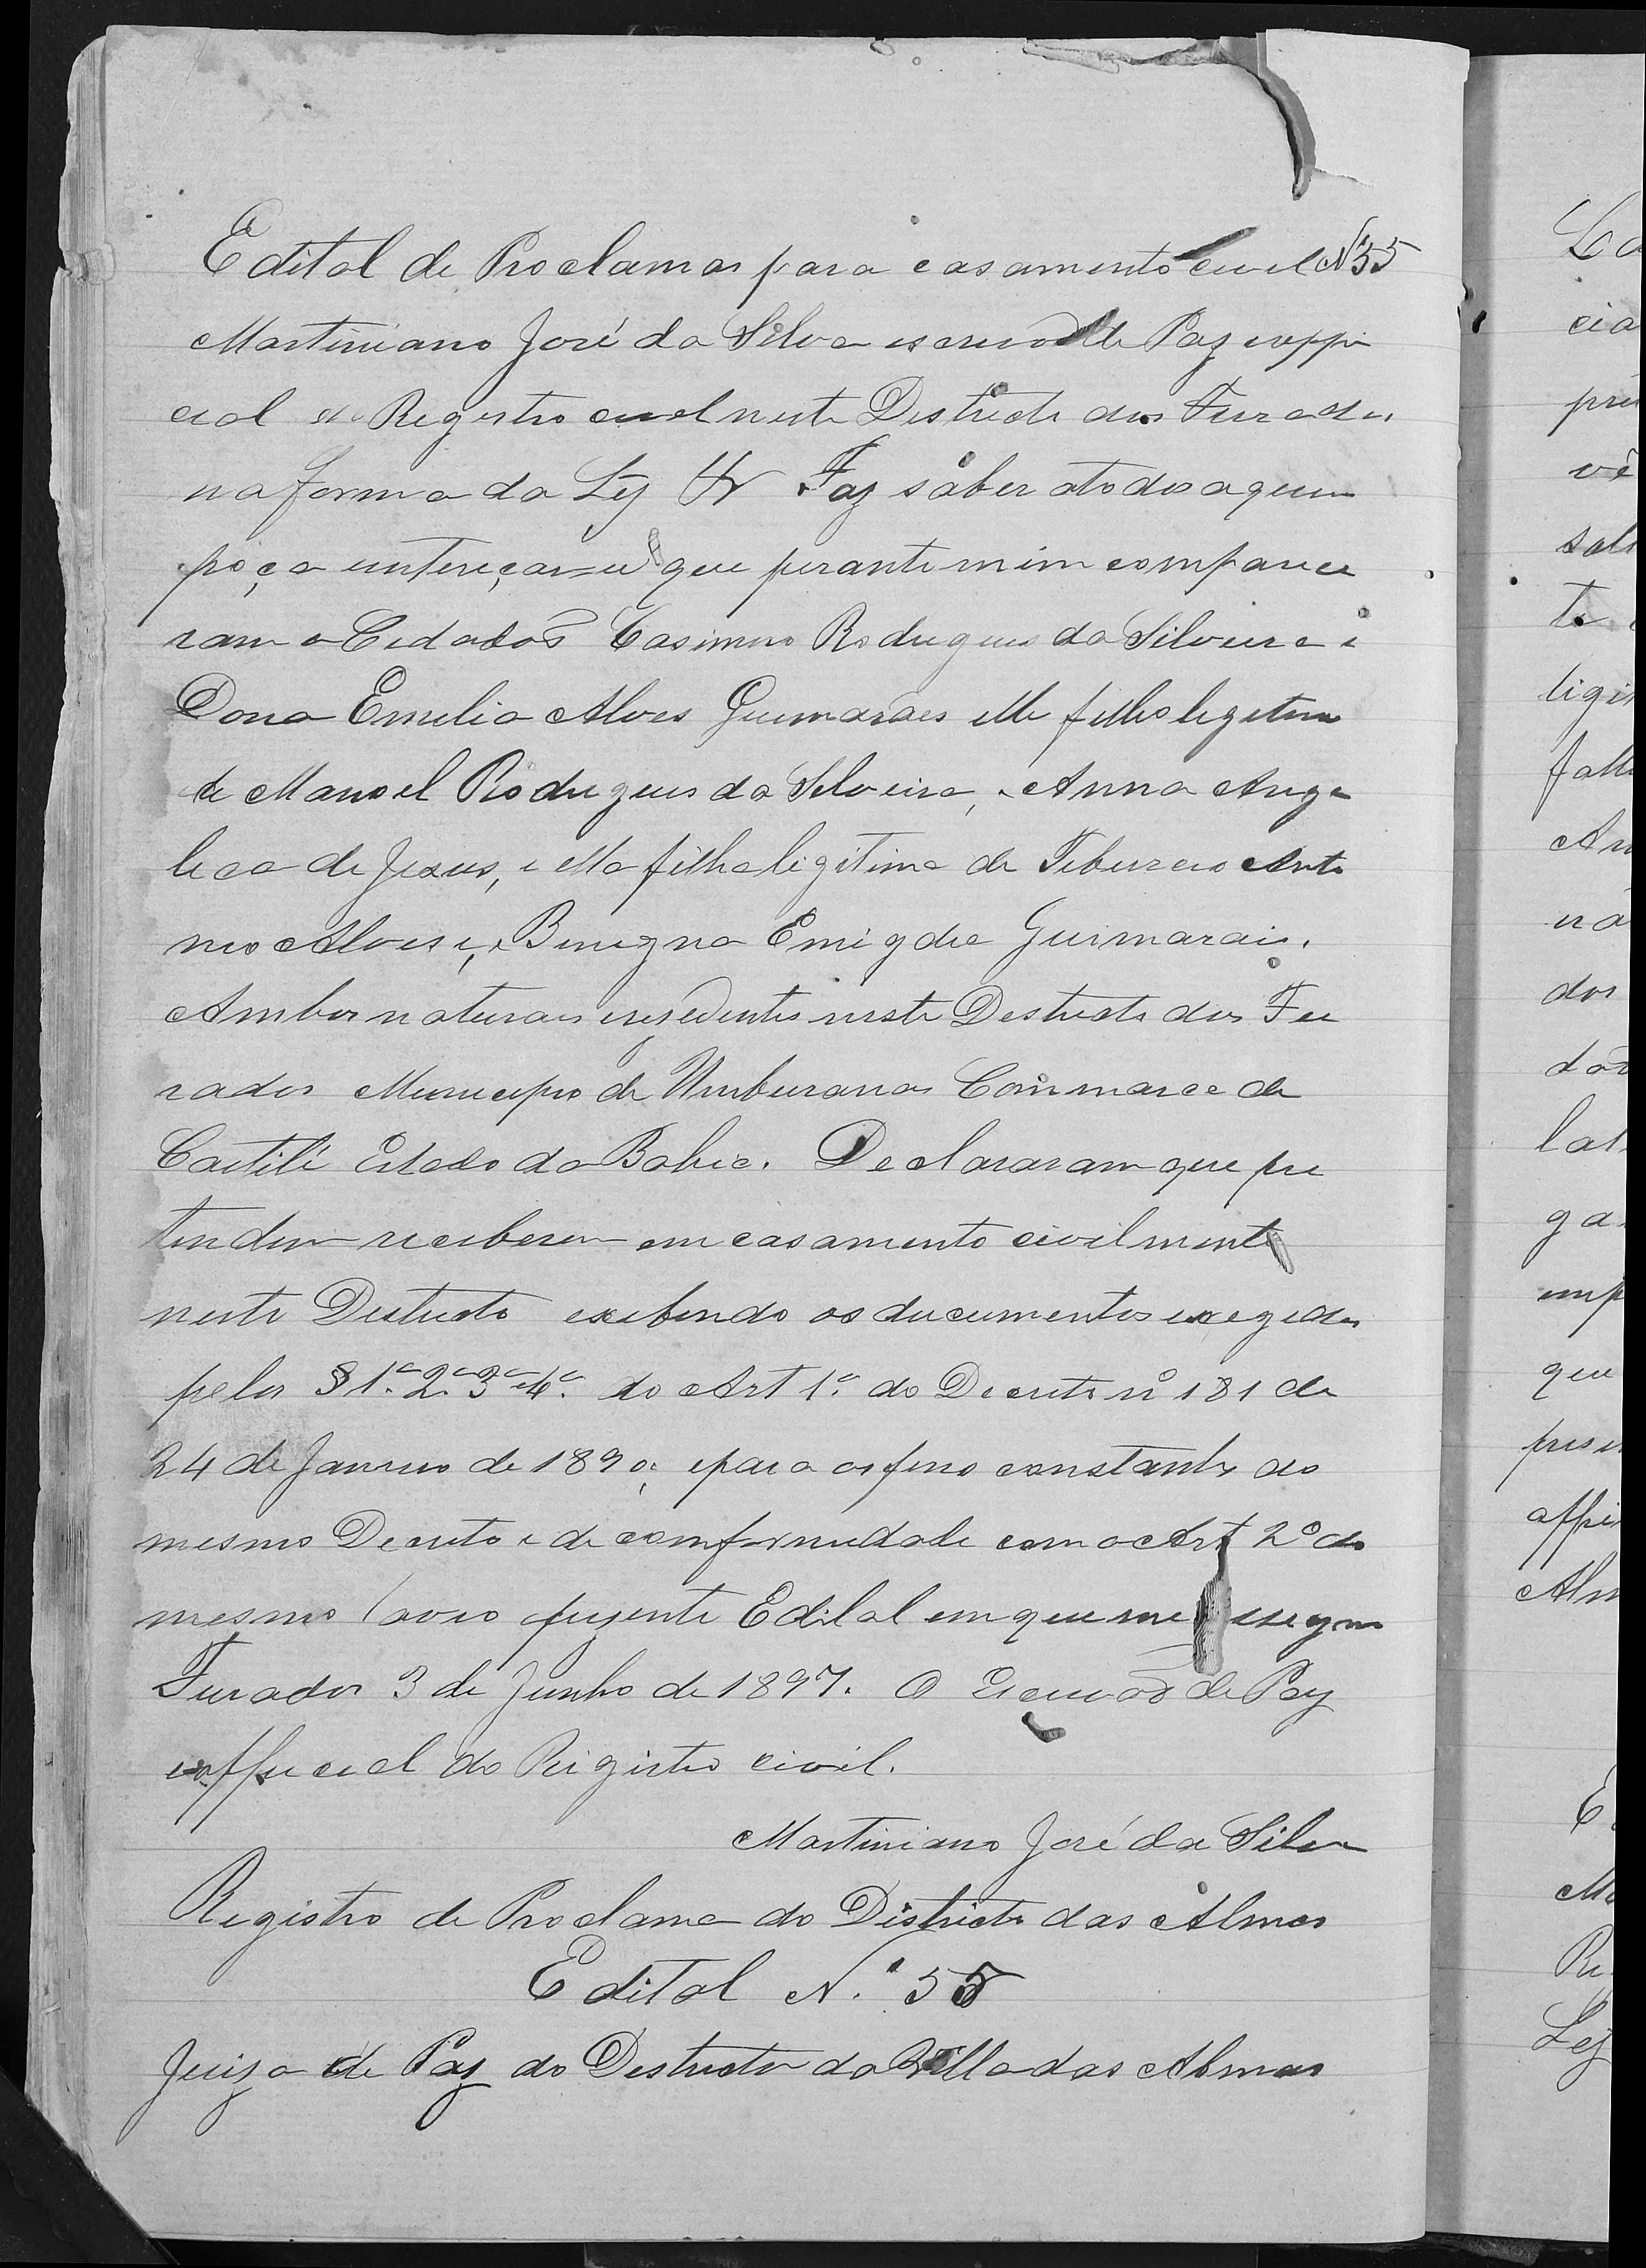 Edital de Proclamas para casamento civel Nº 55
Martiniano José da Silva escrivão de Paz eoffi
cial do Registro civel neste Destricto dos Furados
na forma da Ley &. Faz saber atodos aquem
poça intereçar que perante mim comparece
ram o Cedadão Casimiro Rodrigues da Silveira e
Dona Emilia Alves Guimarães elle filho legetimo
de Manoel Rodrigues da Silveira, e Anna Ange
lica de Jesus, e ella filha legitima de Teburcio Anto
nio Alves, e Benigna Emigdia Guimarais.
Ambos naturais eresedentes neste Destricto dos Fu
rados Municepio de Umburanas Commarca de
Caitité Estado da Bahia. Declararam que pre
tendem receberem em casamento civilmente
neste Destricto exebindo os ducumentos exegedos
pelos § 1º 2º 3º e 4º do Art 1º do Decreto nº 181 de
24 de Janeiro de 1890, epara os fins constantes do
mesmo Decreto e de comformedade com o Art 2º do
mesmo lavro presente Edital em que me
Furados 3 de Junho de 1897. O Escrivão de Paz
eofficial do Rigistro civil.
Martiniano José da Silva
Registro de Proclama do Districto das Almas
Edital N. 55
Juizo de Paz do Destricto da Villa das Almas